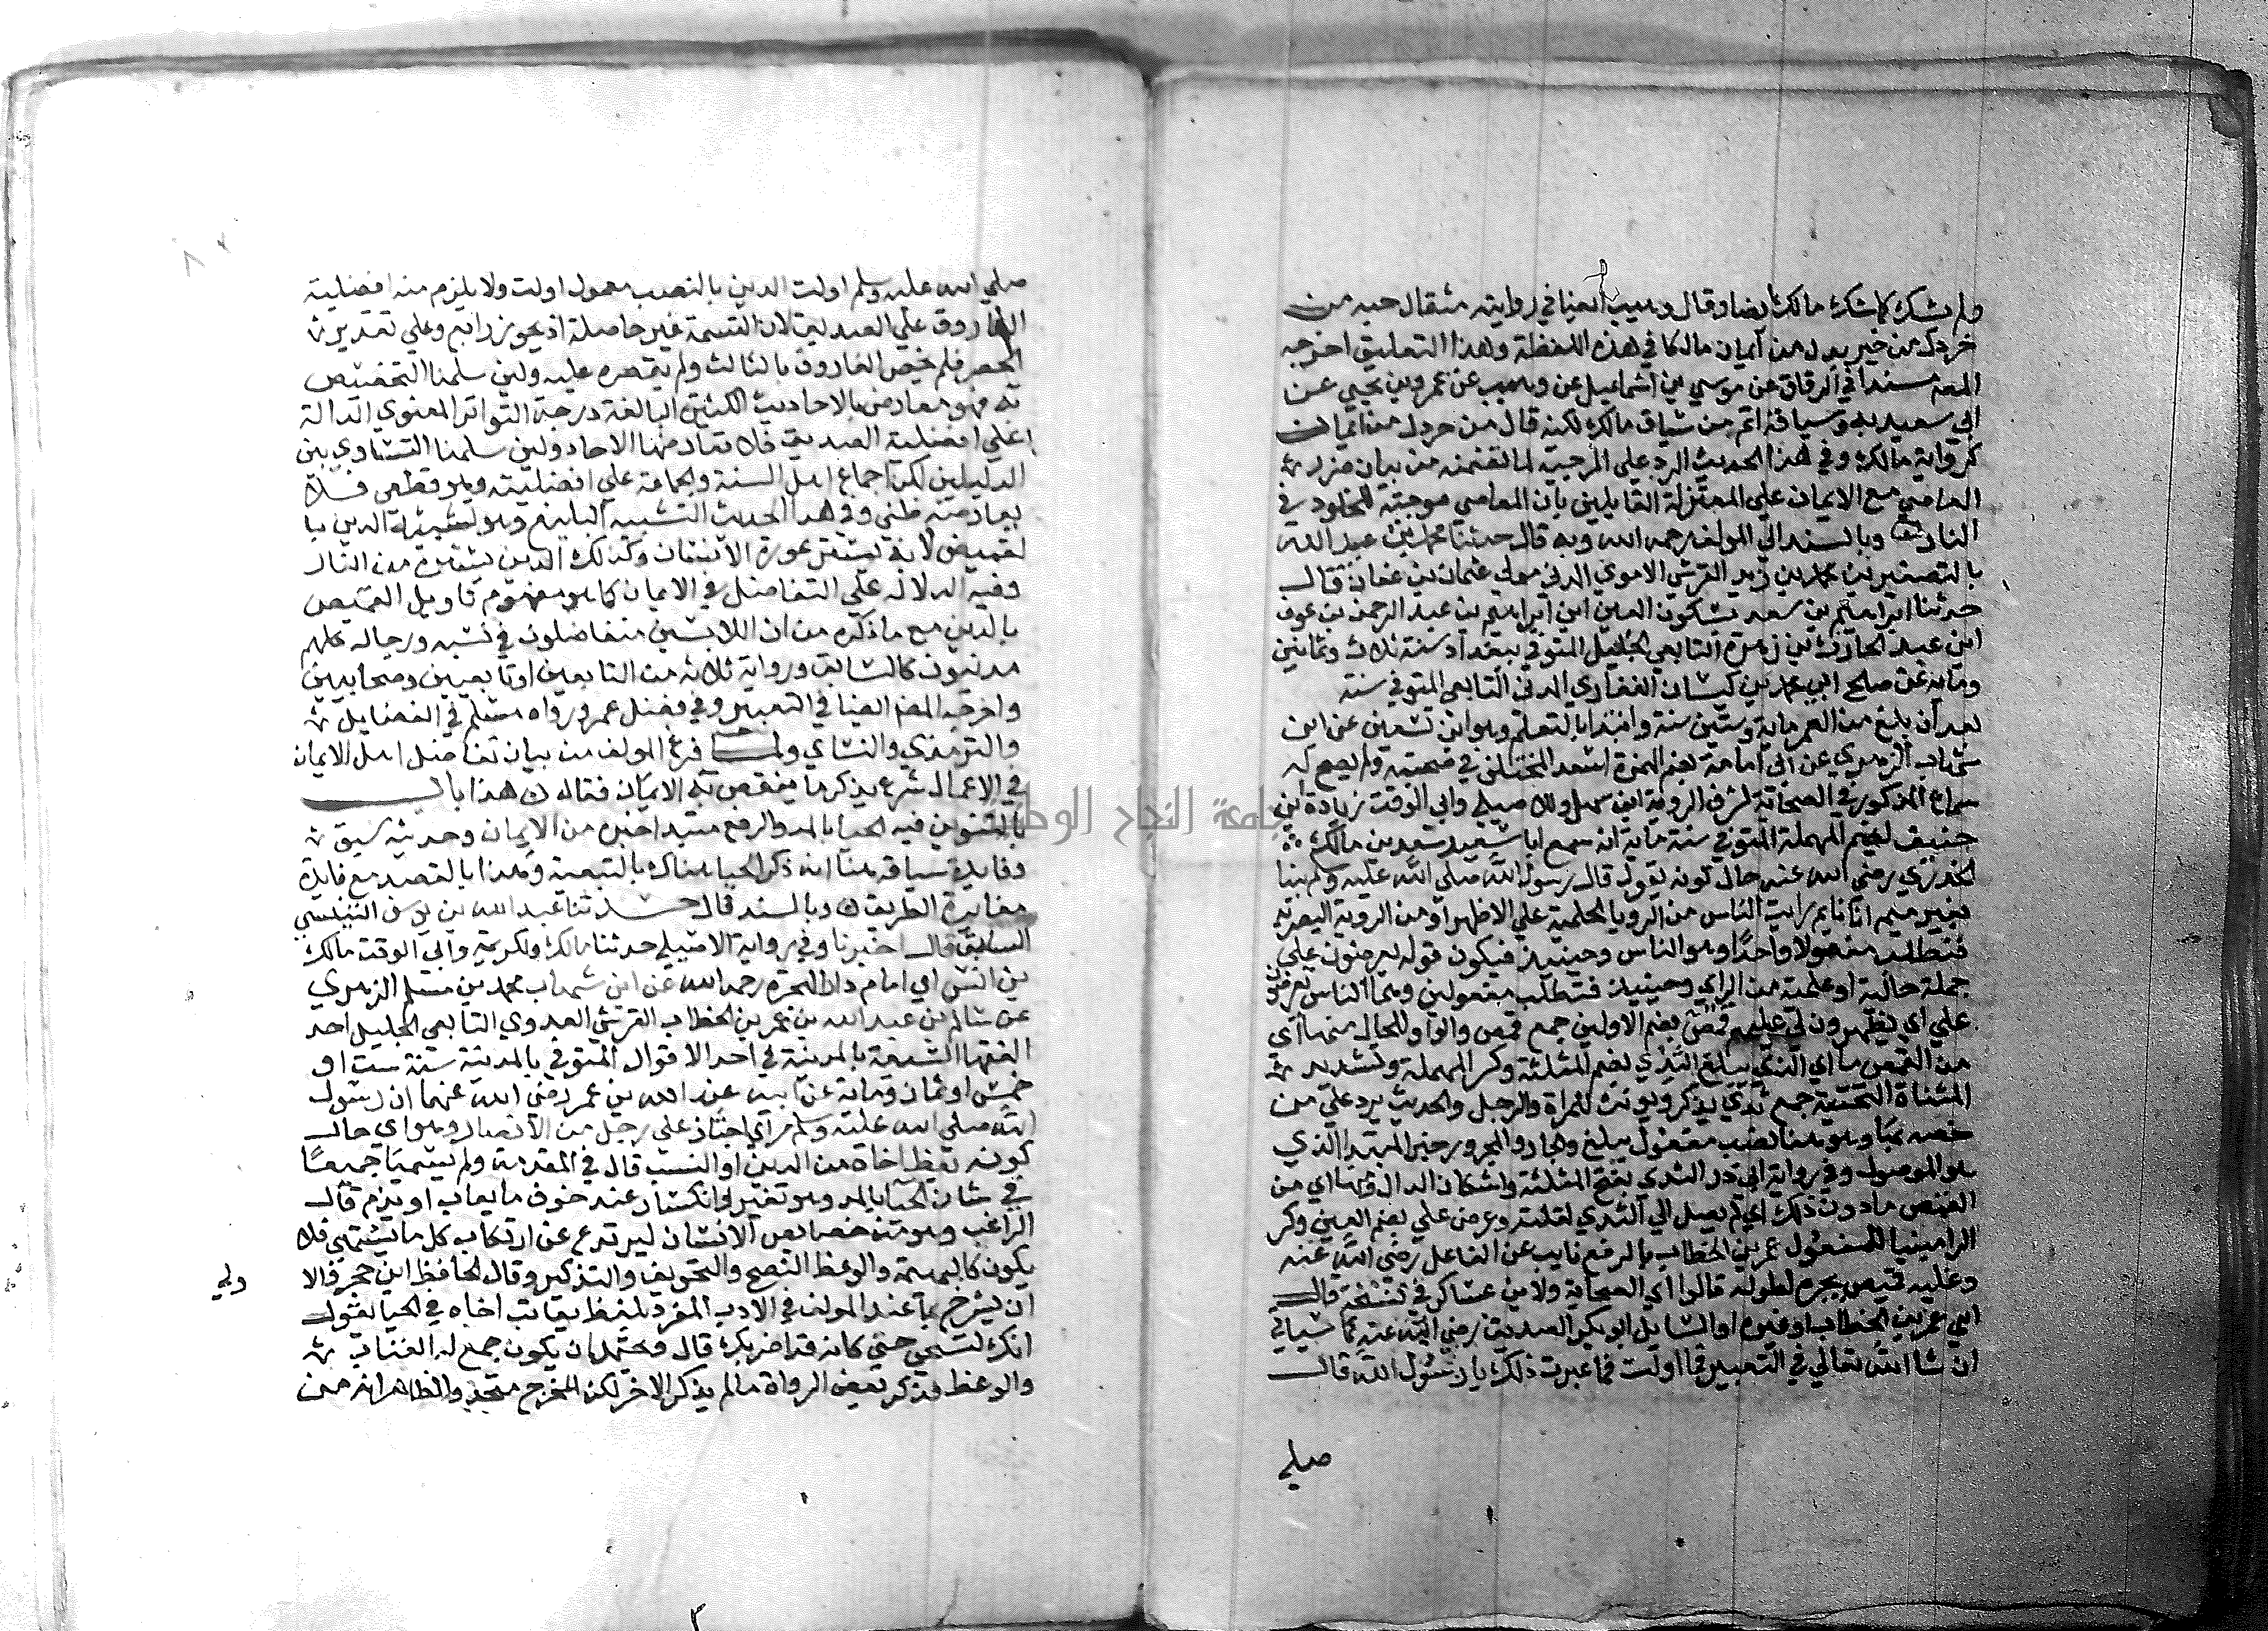 ولم يشك كما شك مالك ايضا وقال وهيب ايضا في روايته مثقال حبه من
خردل من خير بدل من ايمان مالكا في هذه اللفظة وهذا التعليق اخرجه
المص مسندا في الرقاق عن موسي بن اسماعيل عن وهيب عن عمرو بن يحيي عن
ابي سعيد به وسياقه اتم من سياق مالك لكنه قال من خردل من ايمان
كرواية مالك وفي هذا الحديث الرد علي المرجيه لما تضمنه من بيان ضرر
المعاصي مع الايمان وعلي المعتزلة القايلين بان المعاصي موجبة للخلود في
النار وبالسند الي المولف رحمه الله وبه قال حدثنا محمد بن عبيد الله
بالتصغير بن محمد بن زيد القرشي الاموي المدني مولي عثمان بن عفان قال
حدثنا ابراهيم بن سعد بسكون العين ابن ابراهيم بن عبد الرحمن بن عوف
ابن عبد الحارث بن زهرة التابعي الجليل المتوفي ببغداد سنة ثلاث وثمانين
ومايه عن صالح ابي محمد بن كيسان الغفاري المدني التابعي المتوفي سنة
بعد ان بلغ من العمر ماية وستين سنة وابتدا بالتعلم وهو ابن تسعين عن ابن
شهاب الزهري عن ابي امامة بضم الهمزة اسعد المختلف في صحبته ولم يصح له
سماع المذكور في الصحابة لشرف الروية ابن سهل وللاصيلي وابي الوقت زيادة ابن
حنيف بضم المهملة المتوفي سنة ماية انه سمع ابا سعيد سعد بن مالك
الخدري رضي الله عنه حال كونه يقول قال رسول الله صلي الله عليه وسلم بينا
بغير ميم انا نايم رايت الناس من الرويا الحلمية علي الاظهر او من الروية البصرية
فتطلب مفعولا واحدا وهو الناس وحينيذ فيكون قوله يعرضون علي
جملة حالية او علمية من الراي وحينيذ فتطلب مفعولين وهما الناس يعرضون
علي اي يظهرون لي عليهم قمص بضم الاولين جمع قميص والواو للحال منها اي
من القمص ما اي الذي يبلغ الثدي بضم المثلثة وكسر المهملة وتشديد
المثناة التحتية جمع ثدي يذكر ويونث للمراة والرجل والحديث يرد علي من
خصه بها وهو هنا نصب مفعول يبلغ والجار والمجرور خبر المبتدا الذي
هو الموصول وفي رواية ابي ذر الثدي بفتح المثلثة واسكان الدال ومنها اي من
القمص ما دون ذلك اي لم يصل الي الثدي لقلته وعرض علي بضم العين وكسر
الرا مبنيا للمفعول عمر بن الخطاب بالرفع نايب عن الفاعل رضي الله عنه
وعليه قميص يجره لطوله قالوا اي الصحابة ولابن عساكر في نسخة قال
اي عمر بن الخطاب او غيره او السايل ابو بكر الصديق رضي الله عنه كما سياتي
ان شا الله تعالي في التعبير فما اولت فما عبرت ذلك يا رسول الله قال
صلي
صلي الله عليه وسلم اولت الدين بالنصب معمول اولت ولا يلزم منه افضلية
الفاروق علي الصديق لان القسمة غير حاصلة اذ يجوز رابع وعلي تقدير
الحصر فلم يخص الفاروق بالثالث ولم يقصره عليه ولين سلمنا التخصيص
به فهو معارض بالاحاديث الكثيرة البالغة درجة التواتر المعنوي الدالة
علي افضلية الصديق فلا تعارضها الاحاد ولين سلمنا التساوي بين
الدليلين لكن اجماع اهل السنة والجماعة علي افضليته وهو قطعي فلا
يعارضه ظني وفي هذا الحديث التشبيه البليغ وهو تشبيه الدين با
لقميص لانه يستر عورة الانسان وكذلك الدين يستره من النار
وفيه الدلالة علي التفاضل في الايمان كما هو مفهوم تاويل القميص
بالدين مع ما ذكره من ان اللابسين متفاضلون في لبسه ورجاله كلهم
مدنيون كالسابق ورواية ثلاثة من التابعين او تابعيين وصحابيين
واخرجه المص ايضا في التعبير وفي فضل عمر ورواه مسلم في الفضايل
والترمذي والنساي ولما فرغ المولف من بيان تفاضل اهل الايمان
في الاعمال شرع يذكر ما ينقص به الايمان فقال هذا باب
بالتنوين فيه الحيا بالمد والرفع مبتدا خبره من الايمان وحديثه سبق
وفايدة سياقه هنا انه ذكر الحيا هناك بالتبعية وهذا بالقصد مع فايدة
مغايرة الطريق وبالسند قال حدثنا عبد الله بن يوسف التنيسي
السابق قال اخبرنا وفي رواية الاصيلي حدثنا مالك ولكريمة وابي الوقت مالك
بن انس اي امام دار الهجرة رحمه الله عن ابن شهاب محمد بن مسلم الزهري
عن سالم بن عبد الله بن عمر بن الخطاب القرشي العدوي التابعي الجليل احد
الفقها السبعة بالمدينة في احد الاقوال المتوفي بالمدينة سنة ست او
خمس او ثمان وماية عن ابيه عبد الله بن عمر رضي الله عنهما ان رسول
الله صلي الله عليه وسلم مر اي اجتاز علي رجل من الانصار وهو اي حال
كونه يعظ اخاه من الدين او النسب قال في المقدمة ولم يسميا جميعا
في شان الحيا بالمد وهو تغير وانكسار عند خوف ما يعاب او يذم قال
الراغب وهو من خصايص الانسان ليرتدع عن ارتكاب كل ما يشتهي فلا
يكون كالبهيمة والوعظ النصح والتخويف والتذكير وقال الحافظ ابن حجر فالا
ان يشرح بما عند المولف في الادب المفرد بلفظ يعاتب اخاه في الحيا يقول
انك لتستحي حتي كانه قد اضر بك قال ويحتمل ان يكون جمع له العتاب
والوعظ فذكر بعض الرواة ما لم يذكر الاخر لكن المخرج متحد والظاهر انه من
ولي
جامعة النجاح الوطنية